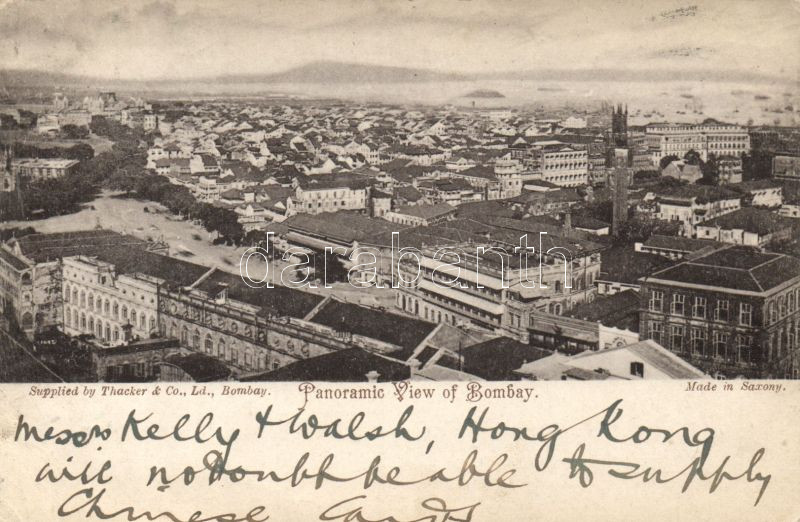 darabanth
Supplied by Thacker & Co., Ld., Bombay. Panoramic View of Bombay. Made in Saxony.
Messrs Kelly & Walsh, Hong Kong
will no doubt be able to supply
Chinese Cards